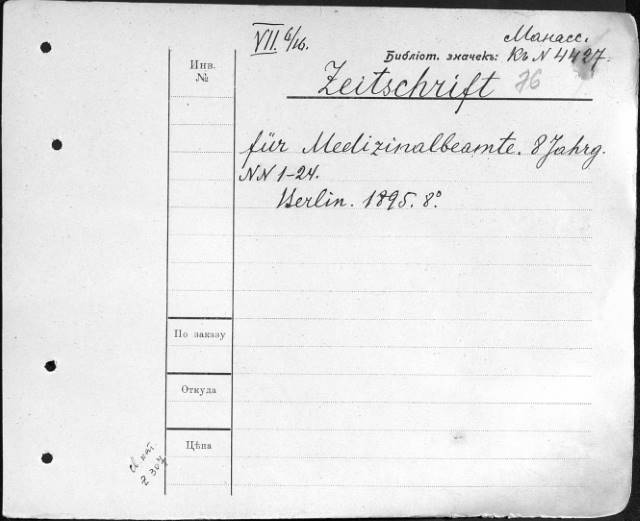 VII. 6/16.
Манасс.
Библіот. значекъ: Къ N 4427.
Инв.
№
Zeitschrift 76
für Medizinalbeamte. 8 Jahrg.
NN 1-24.
Berlin. 1895. 8°.
По заказу
Откуда
Цѣна
кат.
2 307